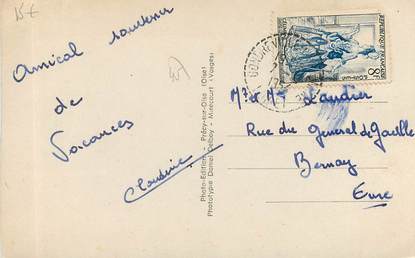 15€
Amical souvenir
de
Vacances
Claudine
Photo-Edition - Précy-sur-Oise (Oise)
Phototype Daniel Delboy - Mirecourt (Vosges)
REPUBLIQUE FRANÇAISE
8F
Mr et Mme Landier
Rue du General de Gaulle
Bernay
Eure